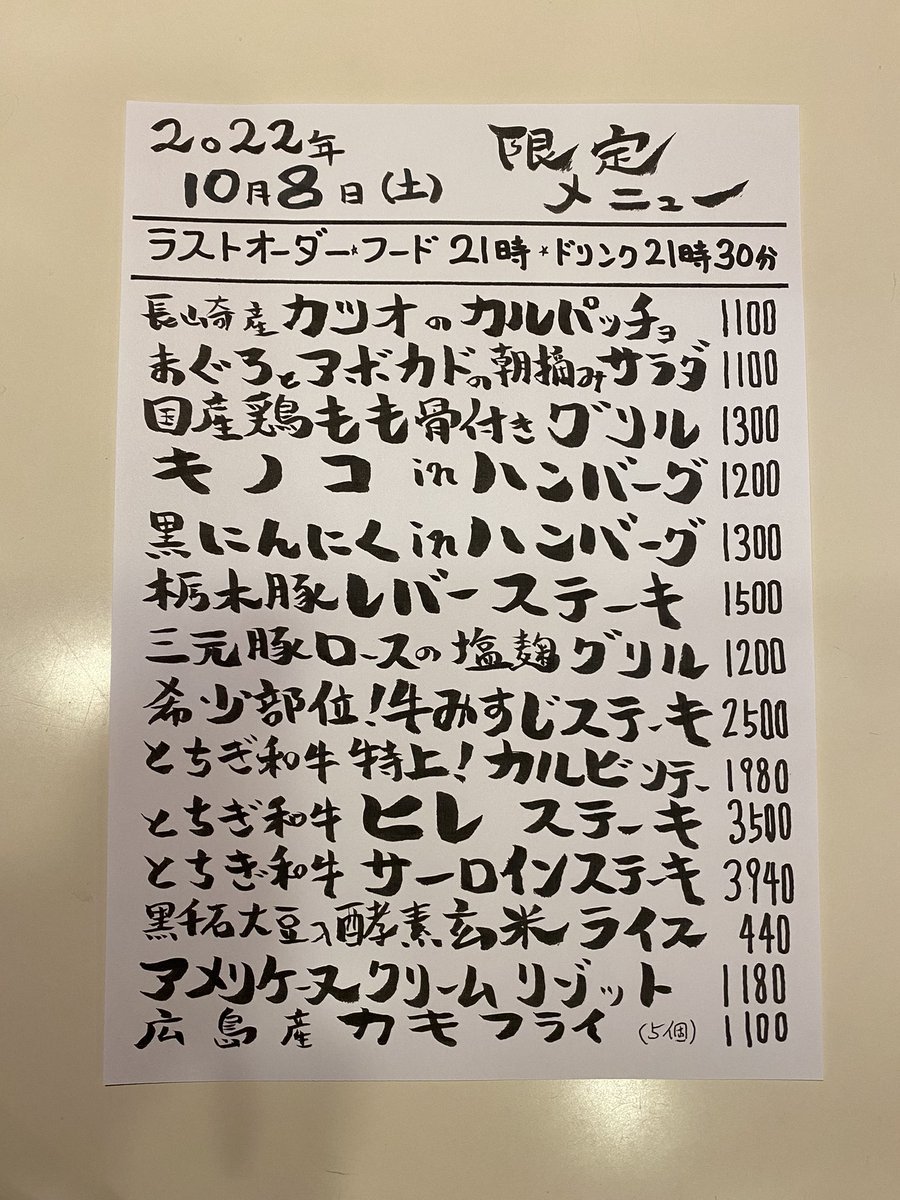 2022年
10月8日(土)
限定
メニュー
ラストオーダー*フード 21時 *ドリンク21時30分
長崎産 カツオのカルパッチョ 1100
まぐろとアボカドの朝摘みサラダ 1100
国産鶏もも骨付きグリル 1300
キノコ in ハンバーグ 1200
黒にんにくinハンバーグ 1300
栃木豚レバーステーキ 1500
三元豚ロースの塩麹グリル 1200
希少部位!牛みすじステーキ 2500
とちぎ和牛 特上!カルビ 1980
とちぎ和牛 ヒレ ステーキ 3500
とちぎ和牛 サーロインステーキ 3940
黒千石大豆入酵素玄米ライス 440
アメリケーヌクリームリゾット 1180
広島産 カキフライ (5個) 1100